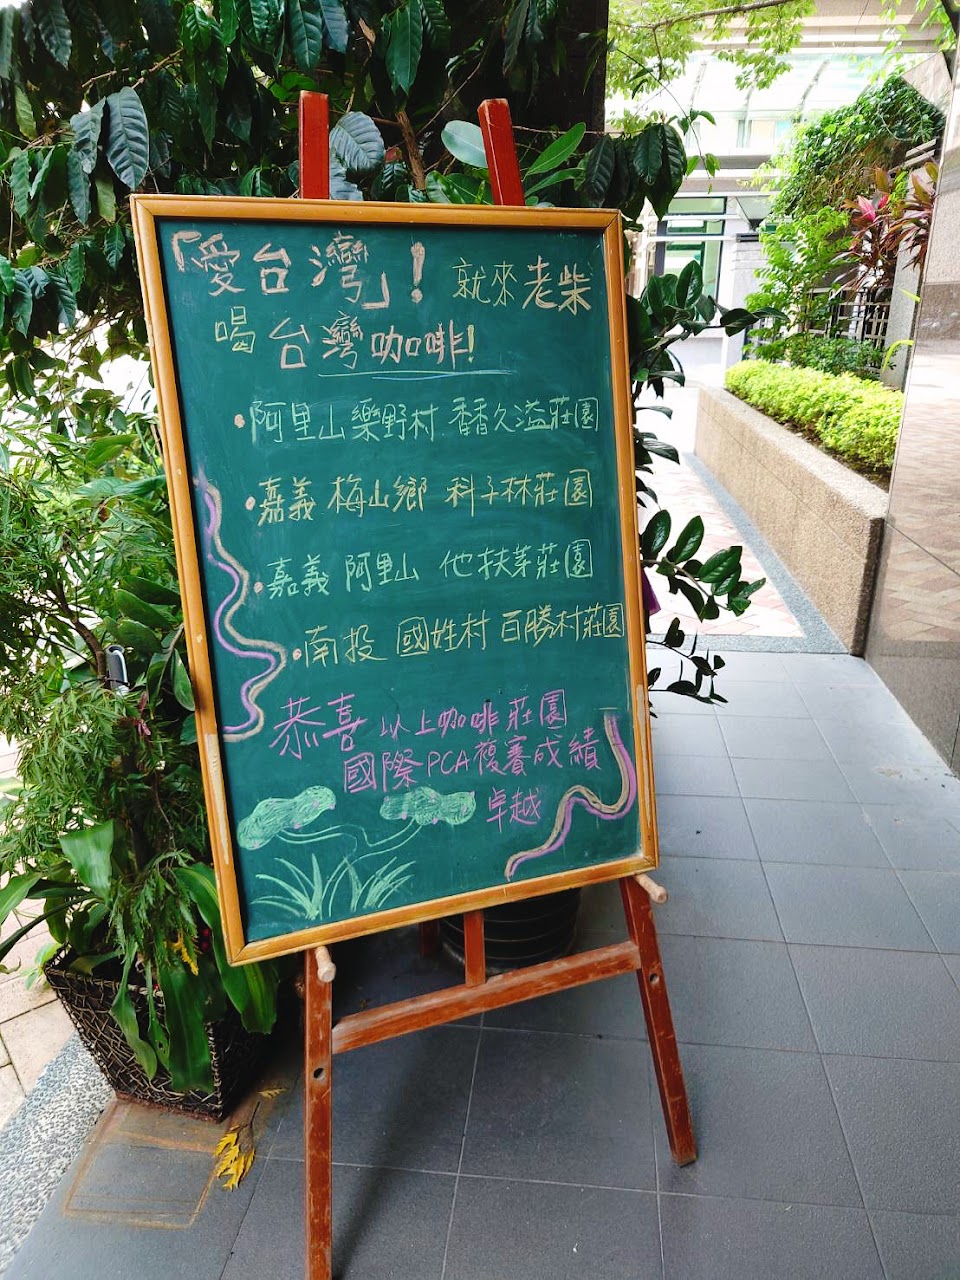 「愛台灣」! 就來老柴
喝台灣咖啡!
•阿里山樂野村 香香久溢莊園
•嘉義 梅山鄉 科子林莊園
•嘉義 阿里山 他扶芽莊園
•南投 國姓村 百勝村莊園
恭喜 以上咖啡莊園
國際PCA複賽成績
卓越